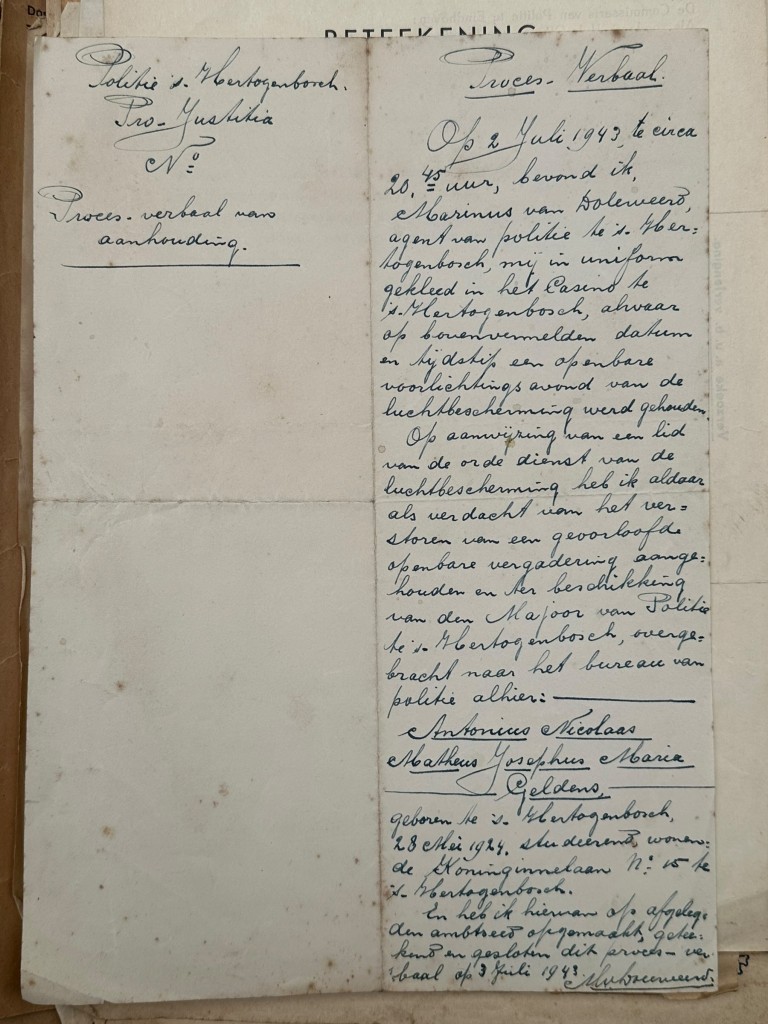 BETEEKENING
Politie 's-Hertogenbosch.
Pro-Justitia
No:
Proces-verbaal van
aanhouding.
Proces-Verbaal.
Op 2 Juli 1943, te circa
20.45 uur, bevond ik,
Marinus van Doleweerd,
agent van politie te 's-Her=
togenbosch, mij in uniform
gekleed in het Casino te
's-Hertogenbosch, alwaar
op bovenvermelden datum
en tijdstip een openbare
voorlichtingsavond van de
luchtbescherming werd gehouden.
Op aanwijzing van een lid
van de orde dienst van de
luchtbescherming heb ik aldaar
als verdacht van het ver=
storen van een geoorloofde
openbare vergadering aange=
houden en ter beschikking
van den Majoor van Politie
te 's-Hertogenbosch, overge=
bracht naar het bureau van
politie alhier:
Antonius Nicolaas
Matheus Josephus Maria
Geldens,
geboren te 's-Hertogenbosch,
28 Mei 1924, studeerend, wonen-
de Koninginnelaan No: 15 te
's-Hertogenbosch.
En heb ik hiervan op afgeleg=
den ambtseed opgemaakt, getee-
kend en gesloten dit proces-ver
baal op 3 Juli 1943.